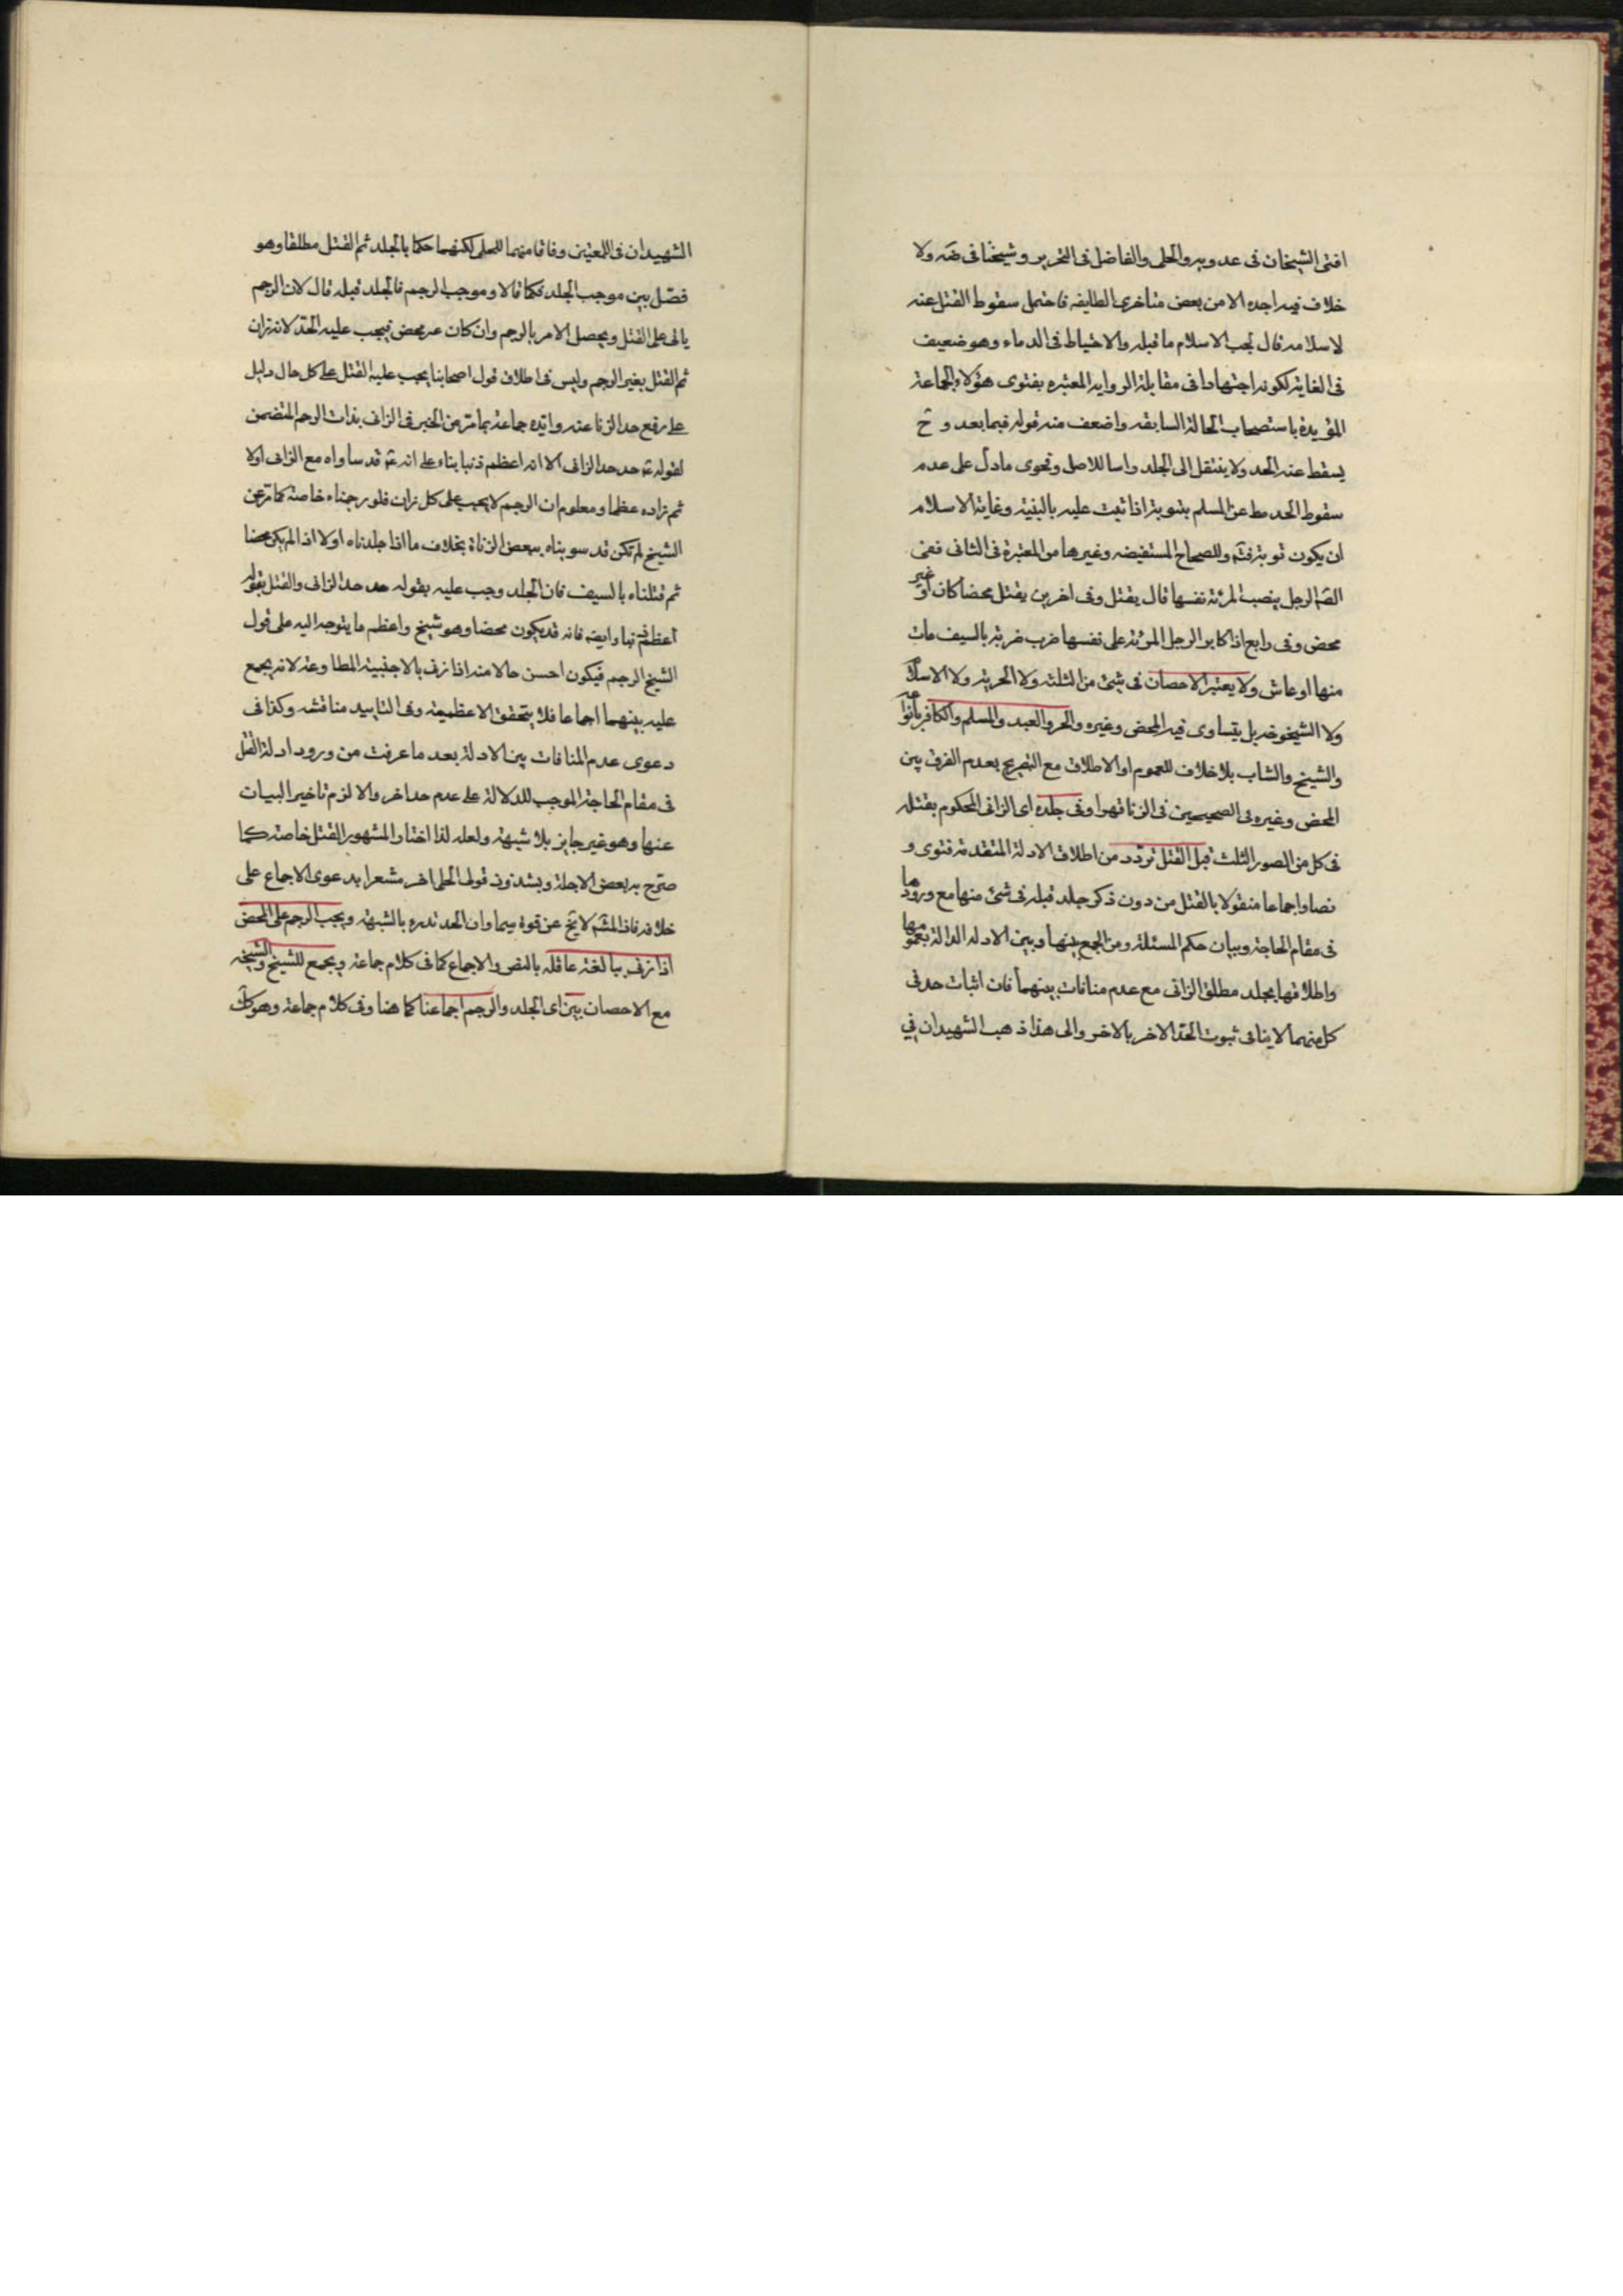 افتى الشيخان فى عد ويه والحلى والفاضل فى التحرير وشيخنا فى ضه ولا
خلاف فيه اجده الا من بعض متاخرى الطايفه فاحتمل سقوط القتل عنه
لاسلامه قال لجب الاسلام ما قبله والاحتياط فى الدماء وهو ضعيف
فى الغاية لكونه اجتهادا فى مقابلة الرواية المعتبره بفتوى هؤلاء الجماعة
المؤيدة باستصحاب الحالة السابقه واضعف منه قوله فيما بعد وح
يسقط عنه الحد ولا ينتقل الى الجلد واسا للاصل وفحوى مادل على عدم
سقوط الحد مط عن المسلم بتوبة اذا ثبت عليه بالبينة وغاية الاسلام
ان يكون توبة فتم وللصحاح المستفيضه وغيرها من المعتبرة فى الثانى ففى
الصه الرجل يغصب المرئة نفسها قال يقتل وفى اخرين يقتل محصنا كان او غير
محصن وفى رابع اذا كابر الرجل المرئة على نفسها ضرب ضربة بالسيف مات
منها او عاش ولا يعتبر الاحصان فى شئ من الثلثه ولا الحرية ولا الاسلام
ولا الشيخوخه بل يتساوى فيه المحصن وغيره والحر والعبد والمسلم والكافر بانواعه
والشيخ والشاب بلا خلاف للعموم او الاطلاق مع التصريح بعدم الفرق بين
المحصن وغيره فى الصحيحين فى الزنا قهرا وفى جلده اى الزانى المحكوم بقتله
فى كل من الصور الثلث قبل القتل تردد من اطلاق الادلة المتقدمة فتوى و
نصا واجماعا منقولا بالقتل من دون ذكر جلد قبله فى شئ منها مع ورودها
فى مقام الحاجة وبيان حكم المسئلة ومن الجمع بينها وبين الادله الدالة بعمومها
واطلاقها بجلد مطلق الزانى مع عدم منافات بينهما فان اثبات حد فى
كل منهما لا ينافى ثبوت الحد الاخر بالاخر والى هذا ذهب الشهيدان في
الشهيدان فى اللمعتين وفاقا منهما للحلى لكنهما حكما بالجلد ثم القتل مطلقا وهو
فصّل بين موجب الجلد فكما قالا وموجب الرجم فالجلد قبله قال لان الرجم
ياتى على القتل ويحصل الامر بالرجم وان كان غير محصن فيجب عليه الحد لانه زان
ثم القتل بغير الرجم وليس فى اطلاق قول اصحابنا يجب عليه القتل على كل حال دليل
على رفع حد الزنا عنه وايده جماعة بما مر من الخبر فى الزانى بذات الرحم المتضمن
لقوله عم حد حد الزانى الا انه اعظم ذنبا بناء على انه عم قد ساواه مع الزانى اولا
ثم زاده عظما ومعلوم ان الرجم لا يجب على كل زان فلو رجمناه خاصة كما مر عن
الشيخ لم تكن قد سويناه ببعض الزناة بخلاف ما اذا جلدناه اولا اذا لم يكن محصنا
ثم قتلناه بالسيف فان الجلد وجب عليه بقوله حد حد الزانى والقتل بقوله
اعظم ذنبا وايضه فانه قد يكون محصنا وهو شيخ واعظم ما يتوجه اليه على قول
الشيخ الرجم فيكون احسن حالا منه اذا زنى بالاجنبية المطاوعة لانه يجمع
عليه بينهما اجماعا فلا يتحقق الاعظمية وفى التاييد مناقشه وكذا فى
دعوى عدم المنافات بين الادلة بعد ما عرفت من ورود ادلة القتل
فى مقام الحاجة الموجب للدلالة على عدم حد اخر والا لزم تاخير البيان
عنها وهو غير جايز بلا شبهة ولعله لذا اختار المشهور القتل خاصة كما
صرّح به بعض الاجلة وبشذوذ قول الحلى اخر مشعرا بدعوى الاجماع على
خلافه فاذا المشم لا يخ عن قوة سيما وان الحد تدرء بالشبهة ويجب الرجم على المحصن
اذا زنى ببالغة عاقله بالنص والاجماع كما فى كلام جماعة ويجمع للشيخ والشيخه
مع الاحصان بين اى الجلد والرجم اجماعنا كما هنا وفى كلام جماعة وهو كك